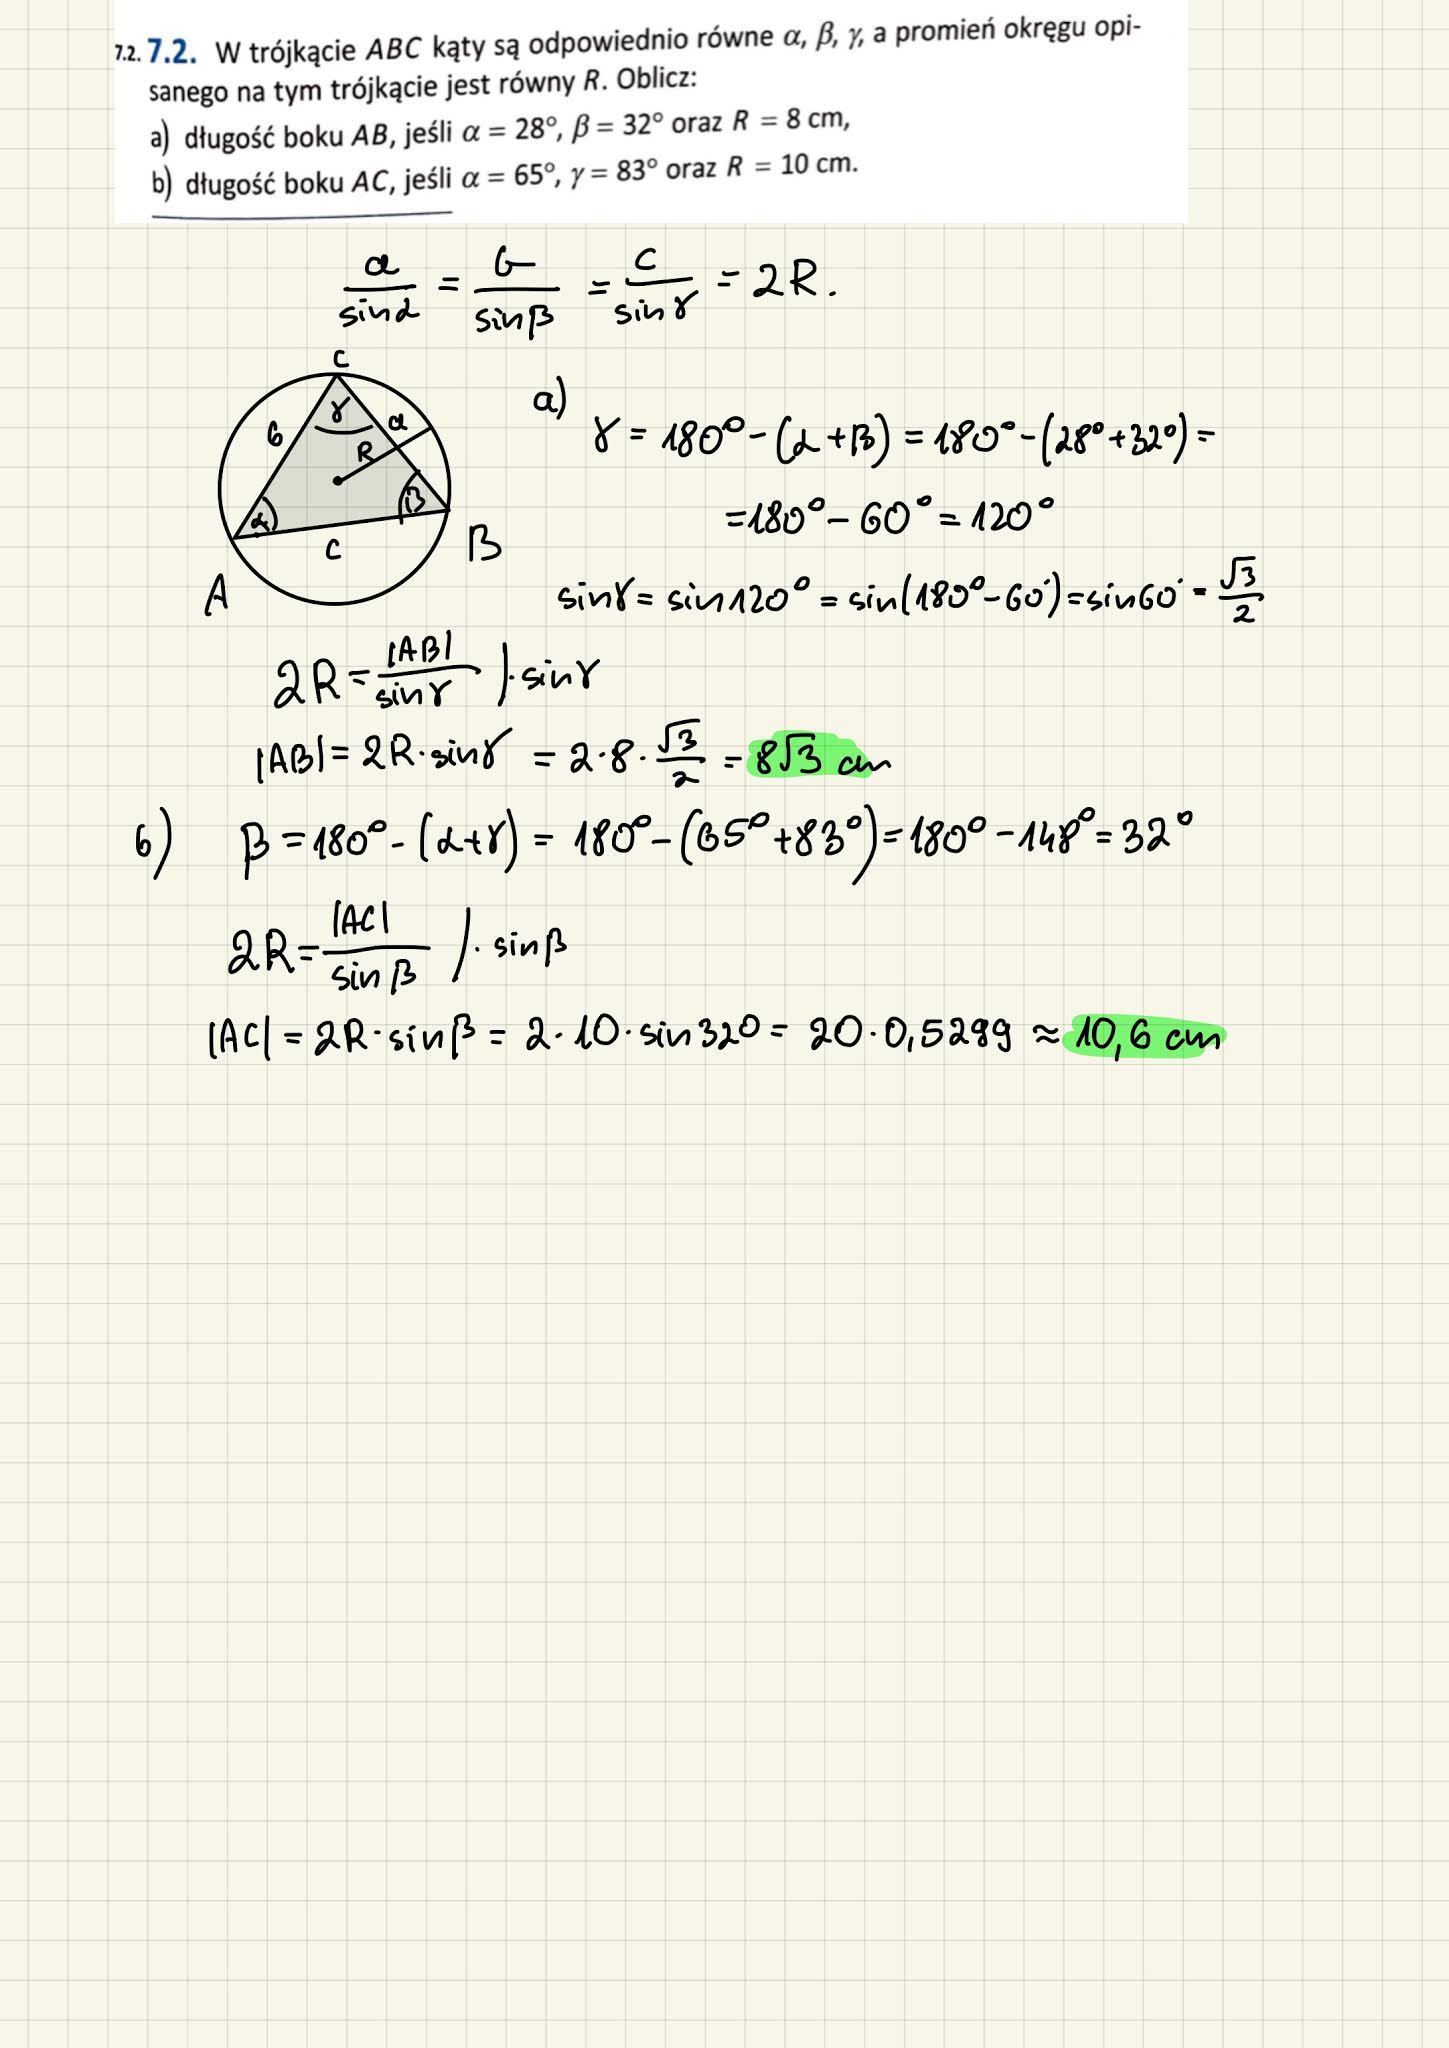 7.2. 7.2. W trójkącie ABC kąty są odpowiednio równe α, β, γ, a promień okręgu opi-
sanego na tym trójkącie jest równy R. Oblicz:
a) długość boku AB, jeśli α = 28°, β = 32° oraz R = 8 cm,
b) długość boku AC, jeśli α = 65°, γ = 83° oraz R = 10 cm.
a/sinα = b/sinβ = c/sinγ = 2R.
C
γ
b
a
R
α
β
c
A
B
a)
γ = 180° - (α + β) = 180° - (28° + 32°) =
= 180° - 60° = 120°
sinγ = sin120° = sin(180° - 60°) = sin60° = √3/2
2R = |AB|/sinγ /· sinγ
|AB| = 2R · sinγ = 2 · 8 · √3/2 = 8√3 cm
b) β = 180° - (α + γ) = 180° - (65° + 83°) = 180° - 148° = 32°
2R = |AC|/sinβ /· sinβ
|AC| = 2R · sinβ = 2 · 10 · sin32° = 20 · 0,5299 ≈ 10,6 cm